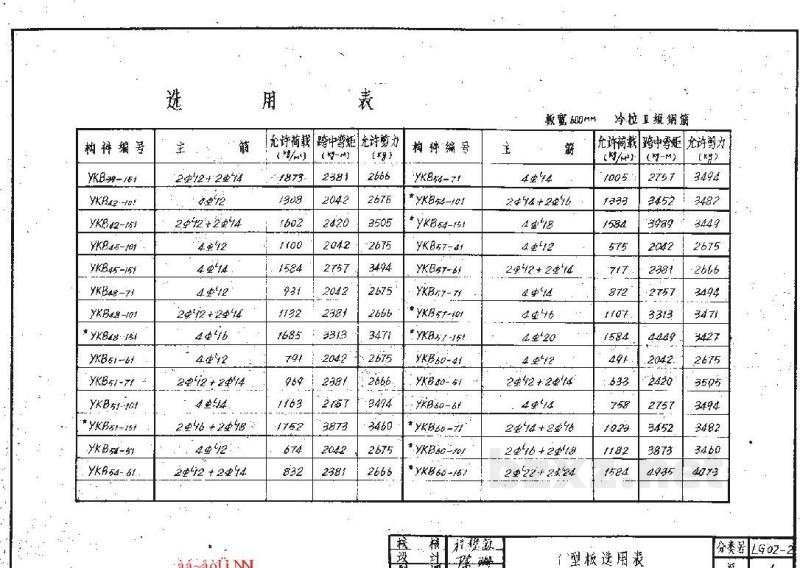 选 用 表
板宽600mm 冷拉Ⅱ级钢筋
构件编号 主筋 允许荷载(kg/m²) 跨中弯矩(kg-M) 允许剪力(kg) 构件编号 主筋 允许荷载(kg/m²) 跨中弯矩(kg-M) 允许剪力(kg)
YKB39-151 2Φᴸ12+2Φᴸ14 1873 2381 2666 YKB54-71 4Φᴸ14 1005 2757 3494
YKB42-101 4Φᴸ12 1308 2042 2675 *YKB54-101 2Φᴸ14+2Φᴸ16 1333 3452 3482
YKB42-151 2Φᴸ12+2Φᴸ14 1602 2420 3505 *YKB54-151 4Φᴸ18 1584 3989 3449
YKB45-101 4Φᴸ12 1100 2042 2675 YKB57-41 4Φᴸ12 575 2042 2675
YKB45-151 4Φᴸ14 1584 2757 3494 YKB57-61 2Φᴸ12+2Φᴸ14 717 2381 2666
YKB48-71 4Φᴸ12 931 2042 2675 YKB57-71 4Φᴸ14 872 2757 3494
YKB48-101 2Φᴸ12+2Φᴸ14 1132 2381 2666 *YKB57-101 4Φᴸ16 1107 3313 3471
*YKB48-151 4Φᴸ16 1685 3313 3471 *YKB57-151 4Φᴸ20 1584 4449 3427
YKB51-61 4Φᴸ12 791 2042 2675 YKB60-41 4Φᴸ12 491 2042 2675
YKB51-71 2Φᴸ12+2Φᴸ14 969 2381 2666 YKB60-51 2Φᴸ12+2Φᴸ14 633 2420 3505
YKB51-101 4Φᴸ14 1163 2757 3494 YKB60-61 4Φᴸ14 758 2757 3494
*YKB51-151 2Φᴸ16+2Φᴸ18 1752 3873 3460 *YKB60-71 2Φᴸ14+2Φᴸ16 1029 3452 3482
YKB54-51 4Φᴸ12 674 2042 2675 *YKB60-101 2Φᴸ16+2Φᴸ18 1182 3873 3460
YKB54-61 2Φᴸ12+2Φᴸ14 832 2381 2666 *YKB60-151 2Φᴸ22+2Φᴸ24 1584 4935 4073
校 核
设 计
型板选用表
分类号 LG02-2